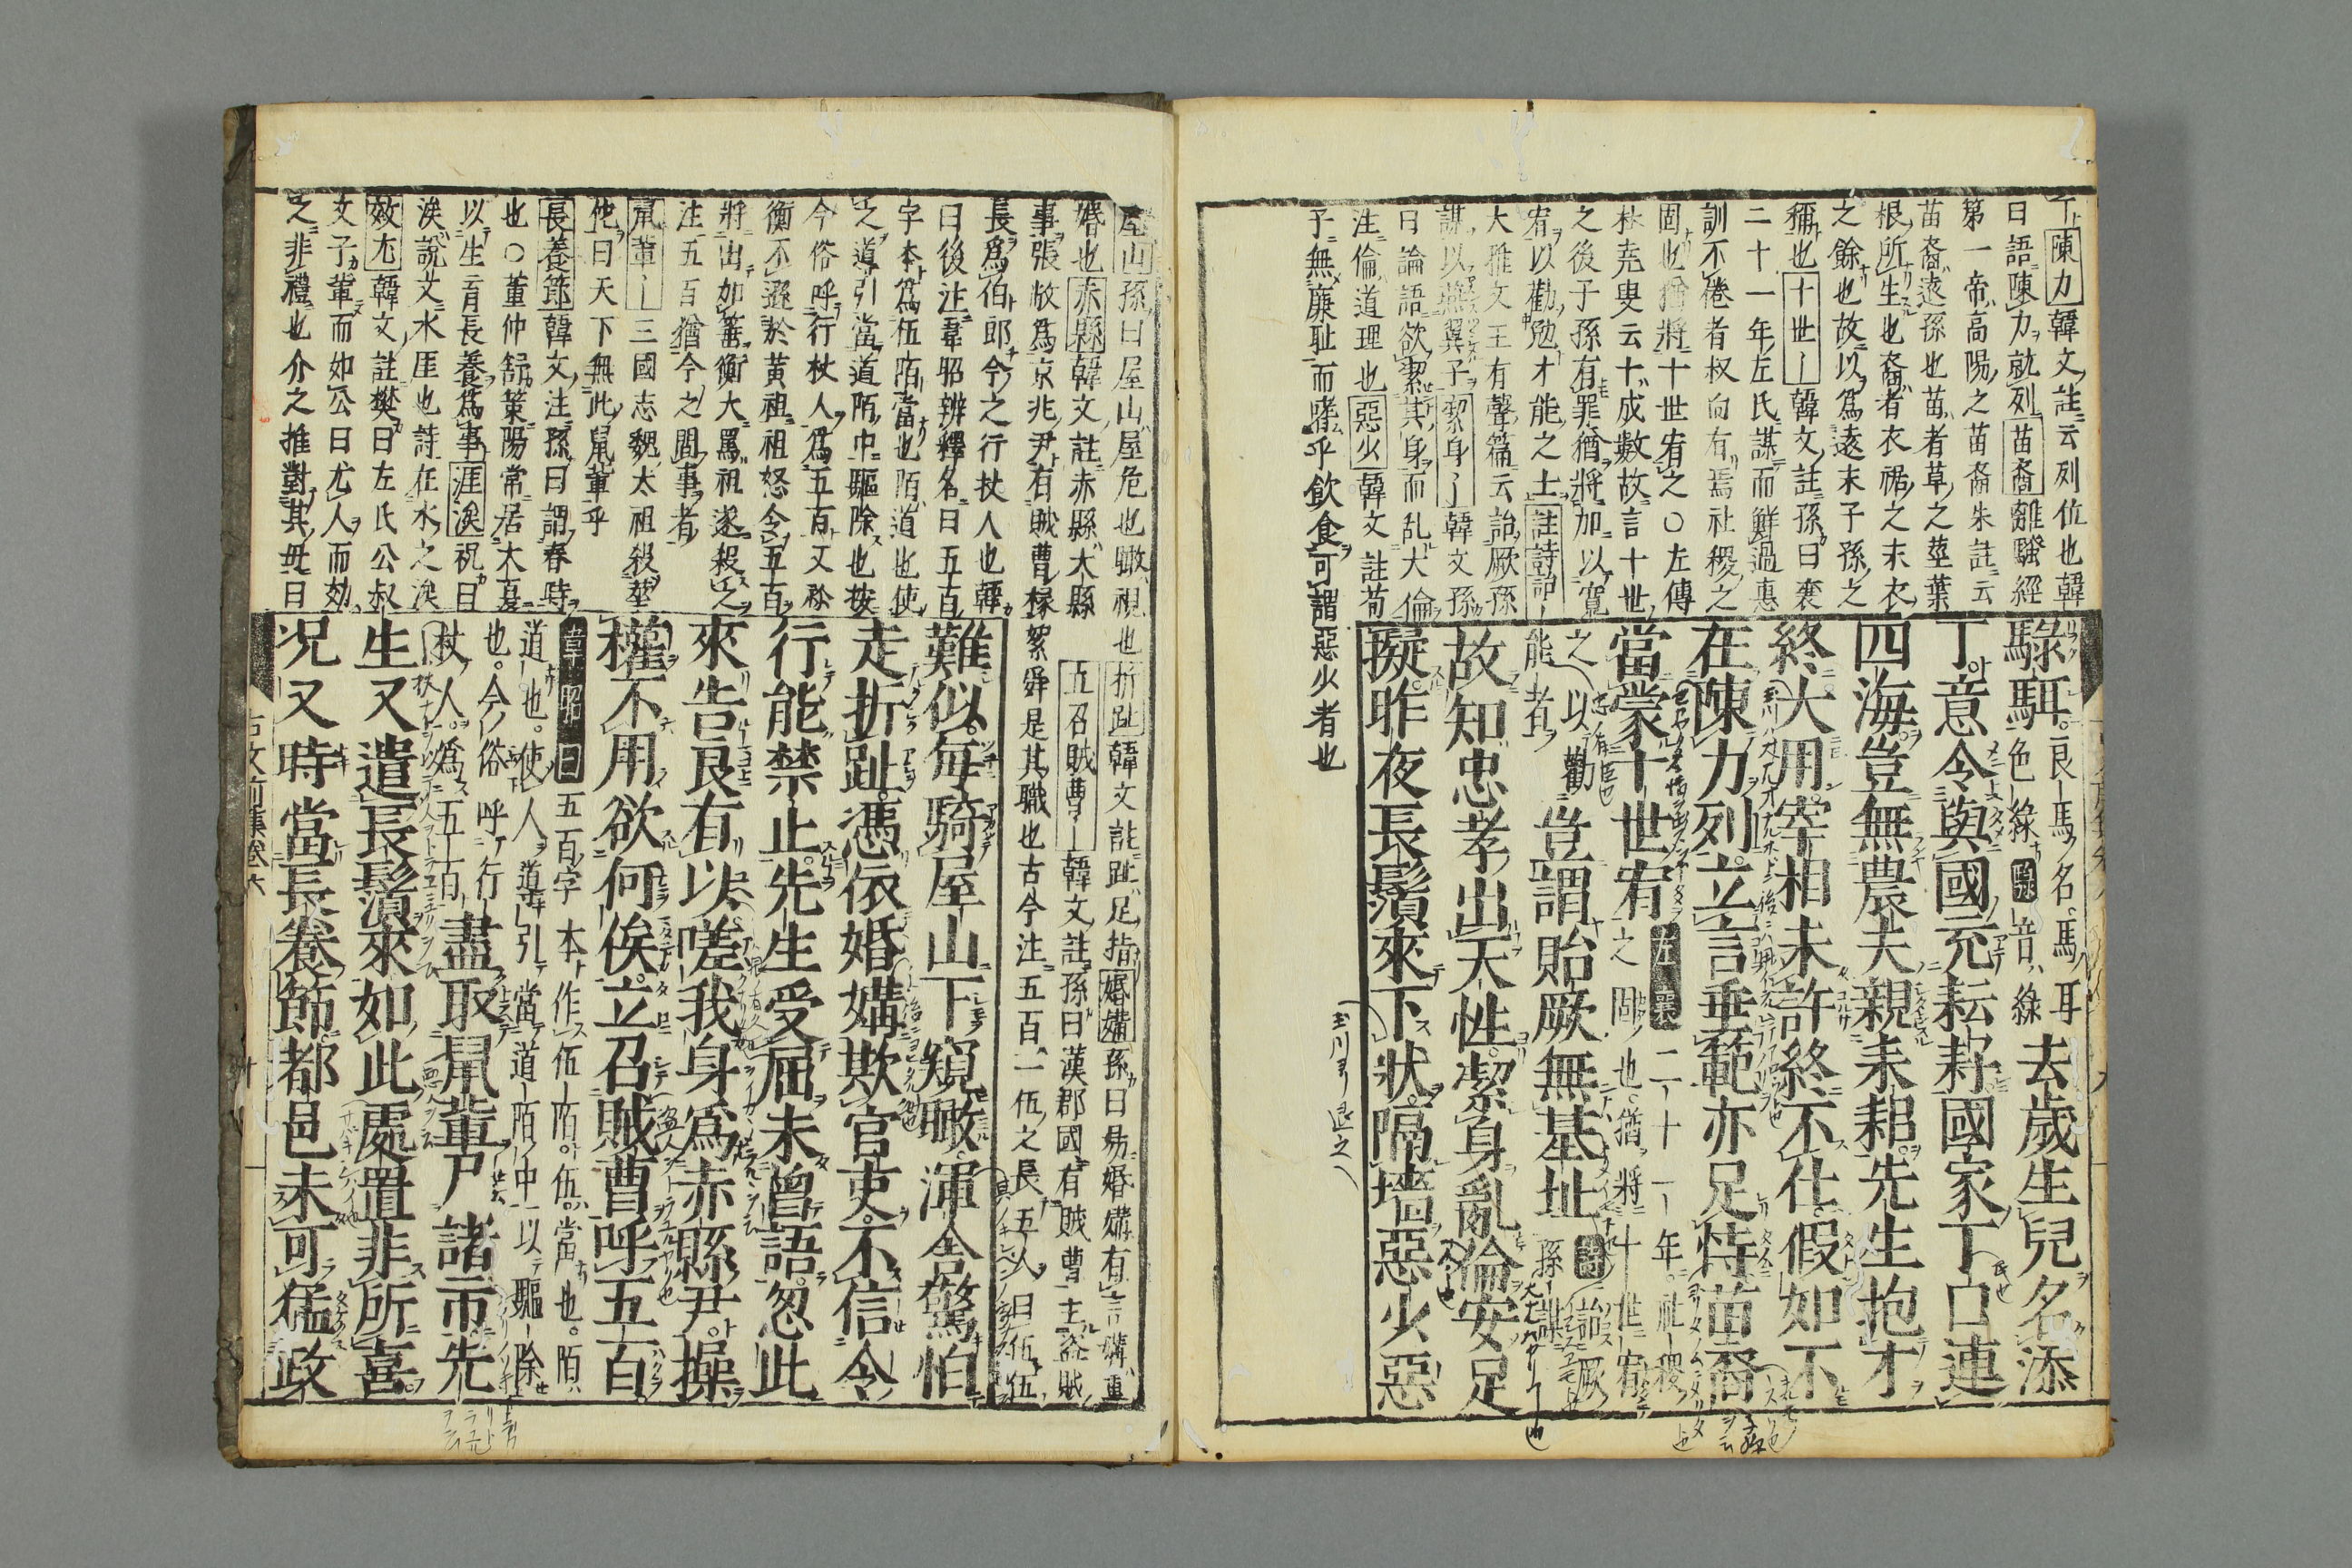 陳力韓文註云列位也韓
曰語陳力就列苗裔離騷經
第一帝高陽之苗裔朱註云
苗裔遠孫也苗者草之莖葉
根所生也裔者衣裾之末衣
之餘也故以爲遠末子孫之
稱也十世｜韓文註孫曰襄
二十一年左氏謀而鮮過惠
訓不倦者叔向有焉社稷之
固也猶將十世宥之○左傳
林堯叟云十成數故言十世
之後子孫有罪猶將加以寬
宥以勸勉才能之士註詩詒｜
大雅文王有聲篇云詒厥孫
謀以燕翼子絜身｜韓文孫
曰論語欲絜其身而乱大倫
注倫道理也惡少韓文註荀
子無廉耻而嗜乎飲食可謂惡少者也
騄駬良馬名馬耳
色綠騄音綠
去歲生兒名添
丁意令與國充耘耔國家丁口連
四海豈無農夫親耒耜先生抱才
終大用宰相未許終不仕假如不
在陳力列立言垂範亦足恃苗裔
當蒙十世宥左襄二十一年社稷
之固也猶將十世宥
之以勸
能者
豈謂貽厥無基址詩詒厥
孫謀
故知忠孝出天性潔身亂倫安足
擬昨夜長鬚來下狀隔墻惡少惡
屋山孫曰屋山屋危也瞰視也折趾韓文註趾足指婚媾孫曰易婚媾有言媾重
婚也赤縣韓文註赤縣大縣
五召賊曹｜韓文註孫曰漢郡國有賊曹主盜賊
事張敞爲京兆尹有賊曹掾絮舜是其職也古今注五百一伍之長五人曰伍伍
長爲伯郎令之行杖人也韓
曰後注韋昭辨釋名曰五百
字本爲伍陌當也陌道也使
之道引當道陌中驅除也按
今俗呼行杖人爲五百又禰
衡不遜於黄祖祖怒令五百
將出加箠衡大罵祖遂殺之
注五百猶今之問事者
鼠輩｜三國志魏太祖殺華
佗曰天下無此鼠輩乎
長養節韓文注孫曰謂春時
也○董仲舒策陽常居大夏
以生育長養爲事涯涘祝曰
涘說文水厓也詩在水之涘
效尤韓文註樊曰左氏公叔
文子輦而如公曰尤人而効
之非禮也介之推對其毋曰
難似每騎屋山下窺瞰渾舍驚怕
走折趾憑依婚媾欺官吏不信令
行能禁止先生受屈未曾語忽此
來告良有以嗟我身爲赤縣尹操
權不用欲何俟立召賊曹呼五百
韋昭曰五百字本作伍陌伍當也陌
道也使人道引當道陌中以驅除
也今俗呼行
杖人爲五百
盡取鼠輩尸諸市先
生又遣長鬚來如此處置非所喜
况又時當長養節都邑未可猛政